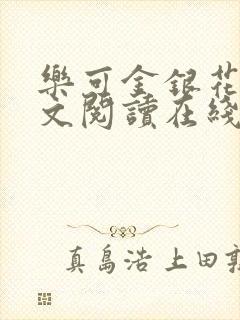 樂可金銀花
文閱讀在綫
真島浩 上田敦